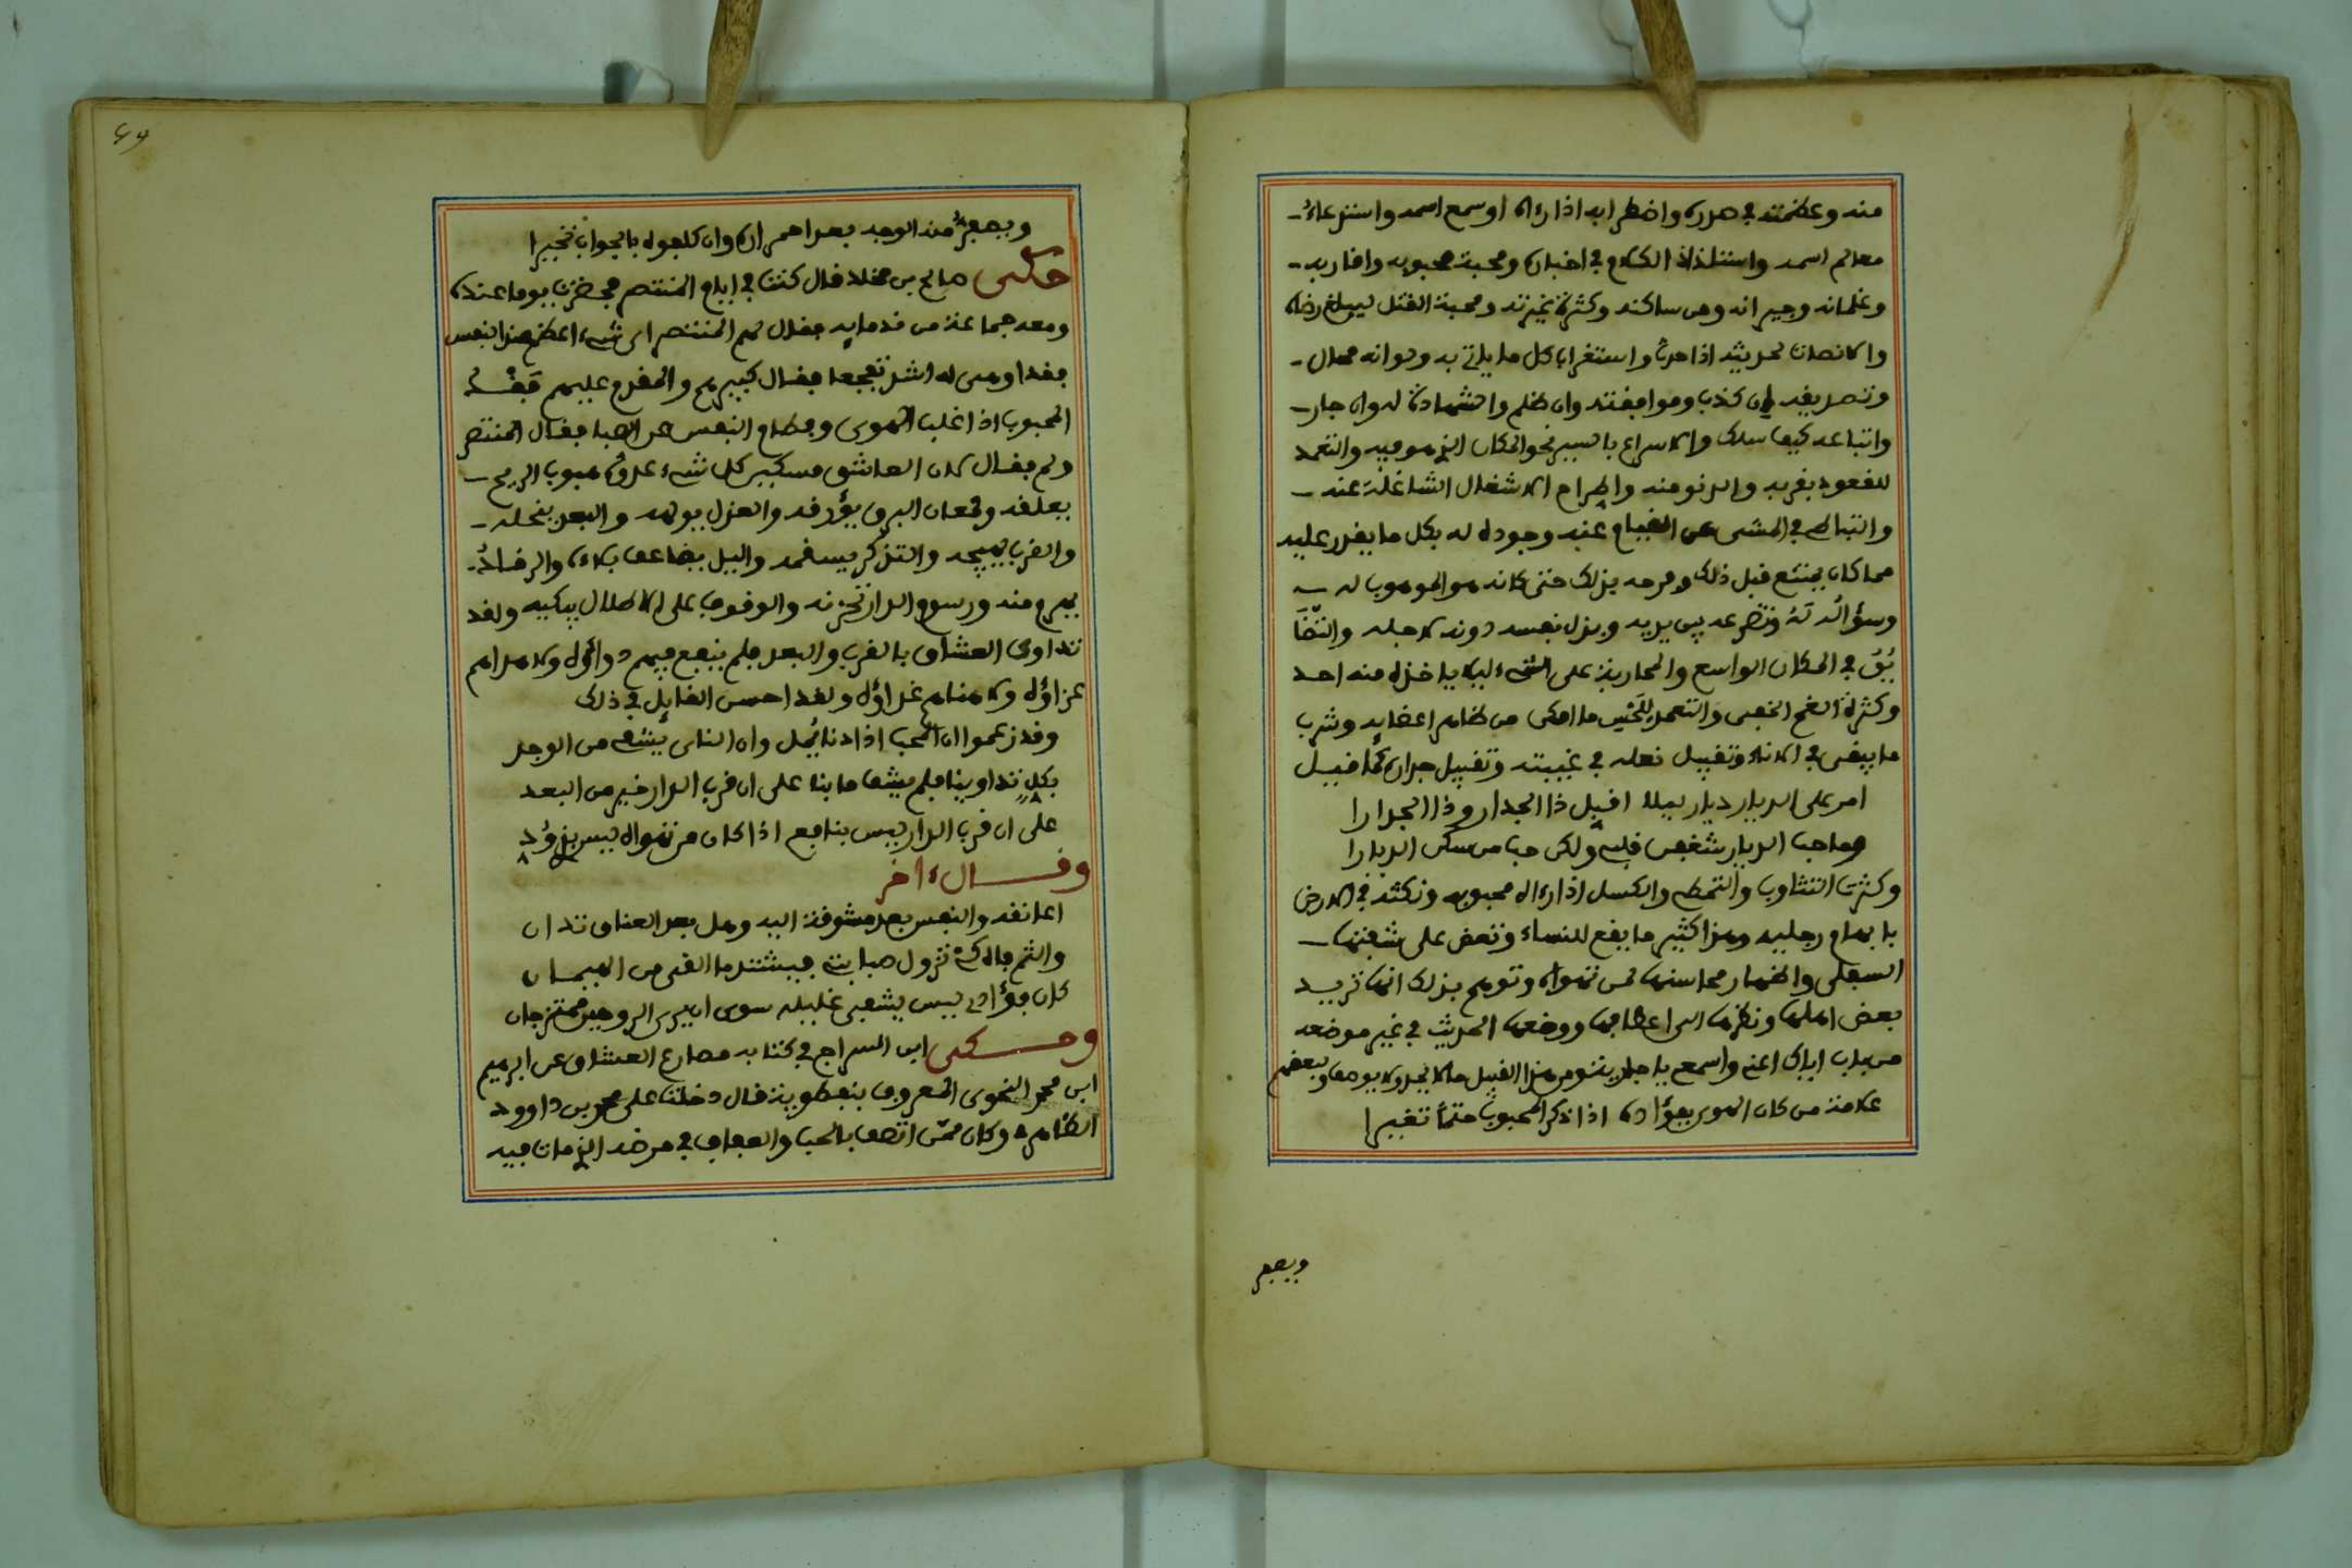 منه وعظمته في صدره واضطرابه اذا رءاه او سمع اسمه واستدعاء
معالم اسمه واستلذاذ الكلام في اخباره ومحبة محبوبه واقاربه
وغلمانه وجيرانه ومن ساكنه وكثرة غيرته ومحبة القتل ليبلغ رضاه
والانصات لحديثه اذا حدث واستغراب كل ما ياتي به ولو انه محال
وتصديقه وان كذب وموافقته وان ظلم والشهادة له وان جار
واتباعه كيف سلك والاسراع بالسير نحو المكان الذي هو فيه والتعمد
للقعود بقربه والدنو منه واطراح الاشغال الشاغلة عنه
والتباطي في المشي عن القيام عنه وجوده له بكل ما يقدر عليه
مما كان يمتنع قبل ذلك وفرحه بذلك حتى كانه هو الموهوب له
وسؤاله له وتضرعه بين يديه وبذل نفسه دونه لاجله والتضا
يق في المكان الواسع والمحاربة على الشيء ليلا ياخذه منه احد
وكثرة الغمز الخفي والتعمد للمس ما امكن من ظاهر اعضايه وشرب
ما يبقى في الاناء وتقبيل نعله في غيبته وتقبيل جداره كما قيل
امر على الديار ديار ليلا اقبل ذا الجدار وذا الجدارا
وما حب الديار شغفن قلبي ولكن حب من سكن الديارا
وكثرت التثاوب والتمطي والكسل اذا رءاى محبوبه ونكثه في الارض
بابهام رجليه وهذا كثير ما يقع للنساء وتعض على شفتها
السفلى واظهار محاسنها لمن تهواه وتوهم بذلك انها تريد
بعض اهلها ونظرها الى اعطافها ووضعها الحديث في غير موضعه
من باب اياك اعني واسمع يا جارة ومن هذا القبيل ما لا يحد ولا يوصف ولبعضهم
علامة من كان الهوى بفؤاده اذا ذكر المحبوب حتما تغيرا
ويصفر
ويصفر منه الوجه بعد احمراره وان كلموه بالجواب تحيرا
حكى صالح بن مخلد قال كنت في ايام المنتصر فحضرت يوما عنده
ومعه جماعة من ندمايه فقال لهم المنتصر اي شيء اعظم عند النفس
فقدا وهي له اشد تفجعا فقال كبيرهم والمقدم عليهم فقد
المحبوب اذا غلب الهوى وفطام النفس عن الصبا فقال المنتصر
ولم فقال لان العاشق مسكين كل شيء عدوه هبوب الريح
يعلقه ولمعان البرق يؤرقه والعذل يولمه والبعد ينحله
والقرب يهيجه والتذكر يسقمه والليل يضاعف بلاءه والرقاد
يهرب منه ورسوم الدار تحزنه والوقوف على الاطلال يبكيه ولقد
تداوى العشاق بالقرب والبعد فلم ينفع فيهم دواؤه ولا مرامهم
عزاؤه ولا منام غداؤه ولقد احسن القايل في ذلك
وقد زعموا ان المحب اذا دنا يمل وان الناى يشفي من الوجد
بكل تداوينا فلم يشف ما بنا على ان قرب الدار خير من البعد
على ان قرب الدار ليس بنافع اذا كان من تهواه ليس بذي ود
وقــال ءاخر
اعانقه والنفس بعد مشوقة اليه وهل بعد العناق تدان
والثم فاه كي تزول صبابتي فيشتد ما القى من الهيمان
كان فؤادي ليس يشفي غليله سوى ان يرى الروحين ممتزجان
وحــكى ابن السراج في كتابه مصارع العشاق عن ابرهيم
ابن محمد النحوي المعروف بنفطوية قال دخلت على محمد بن داوود
الظاهري وكان ممن اتصف بالحب والعفاف في مرضه الذي مات فيه